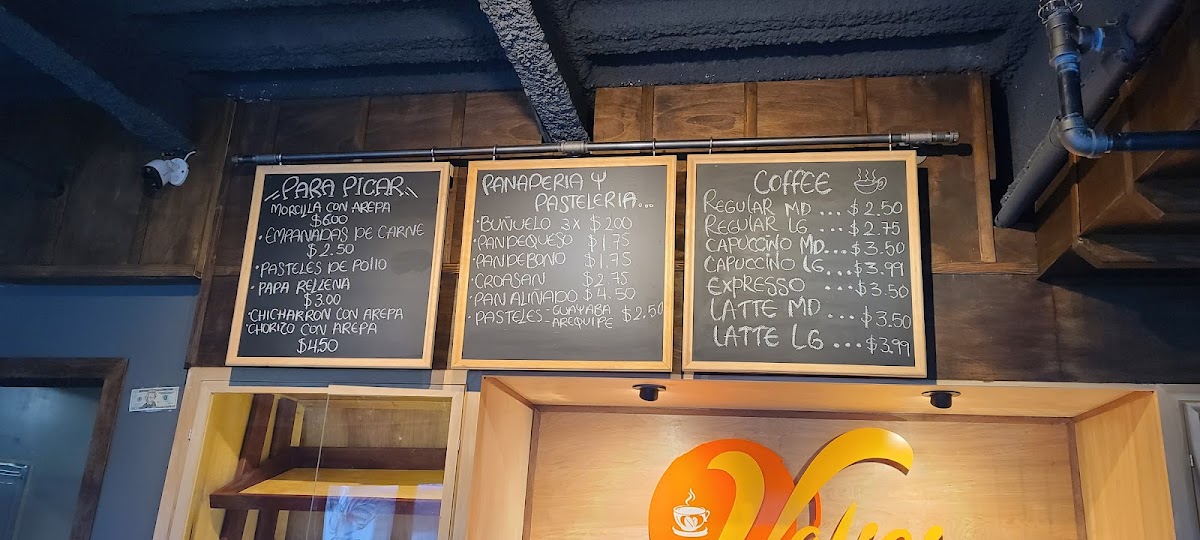 PARA PICAR
MORCILLA CON AREPA
$6.00
· EMPANADAS DE CARNE
$2.50
· PASTELES DE POllO
· PAPA RELLENA
$3.00
· CHICHARRON CON AREPA
· CHORIZO CON AREPA
$4.50
PANAPERIA Y
PASTELERIA...
· BUÑUELO 3X $2.00
· PANDEQUESO $1.75
· PANDEBONO $1.75
· CROASAN $2.75
· PAN ALIÑADO $4.50
· PASTELES - GUAYABA
AREQUIPE $2.50
COFFEE
REGULAR MD ... $2.50
REGULAR LG ... $2.75
CAPUCCINO MD... $3.50
CAPUCCINO LG... $3.99
EXPRESSO ... $3.50
LATTE MD ... $3.50
LATTE LG ... $3.99